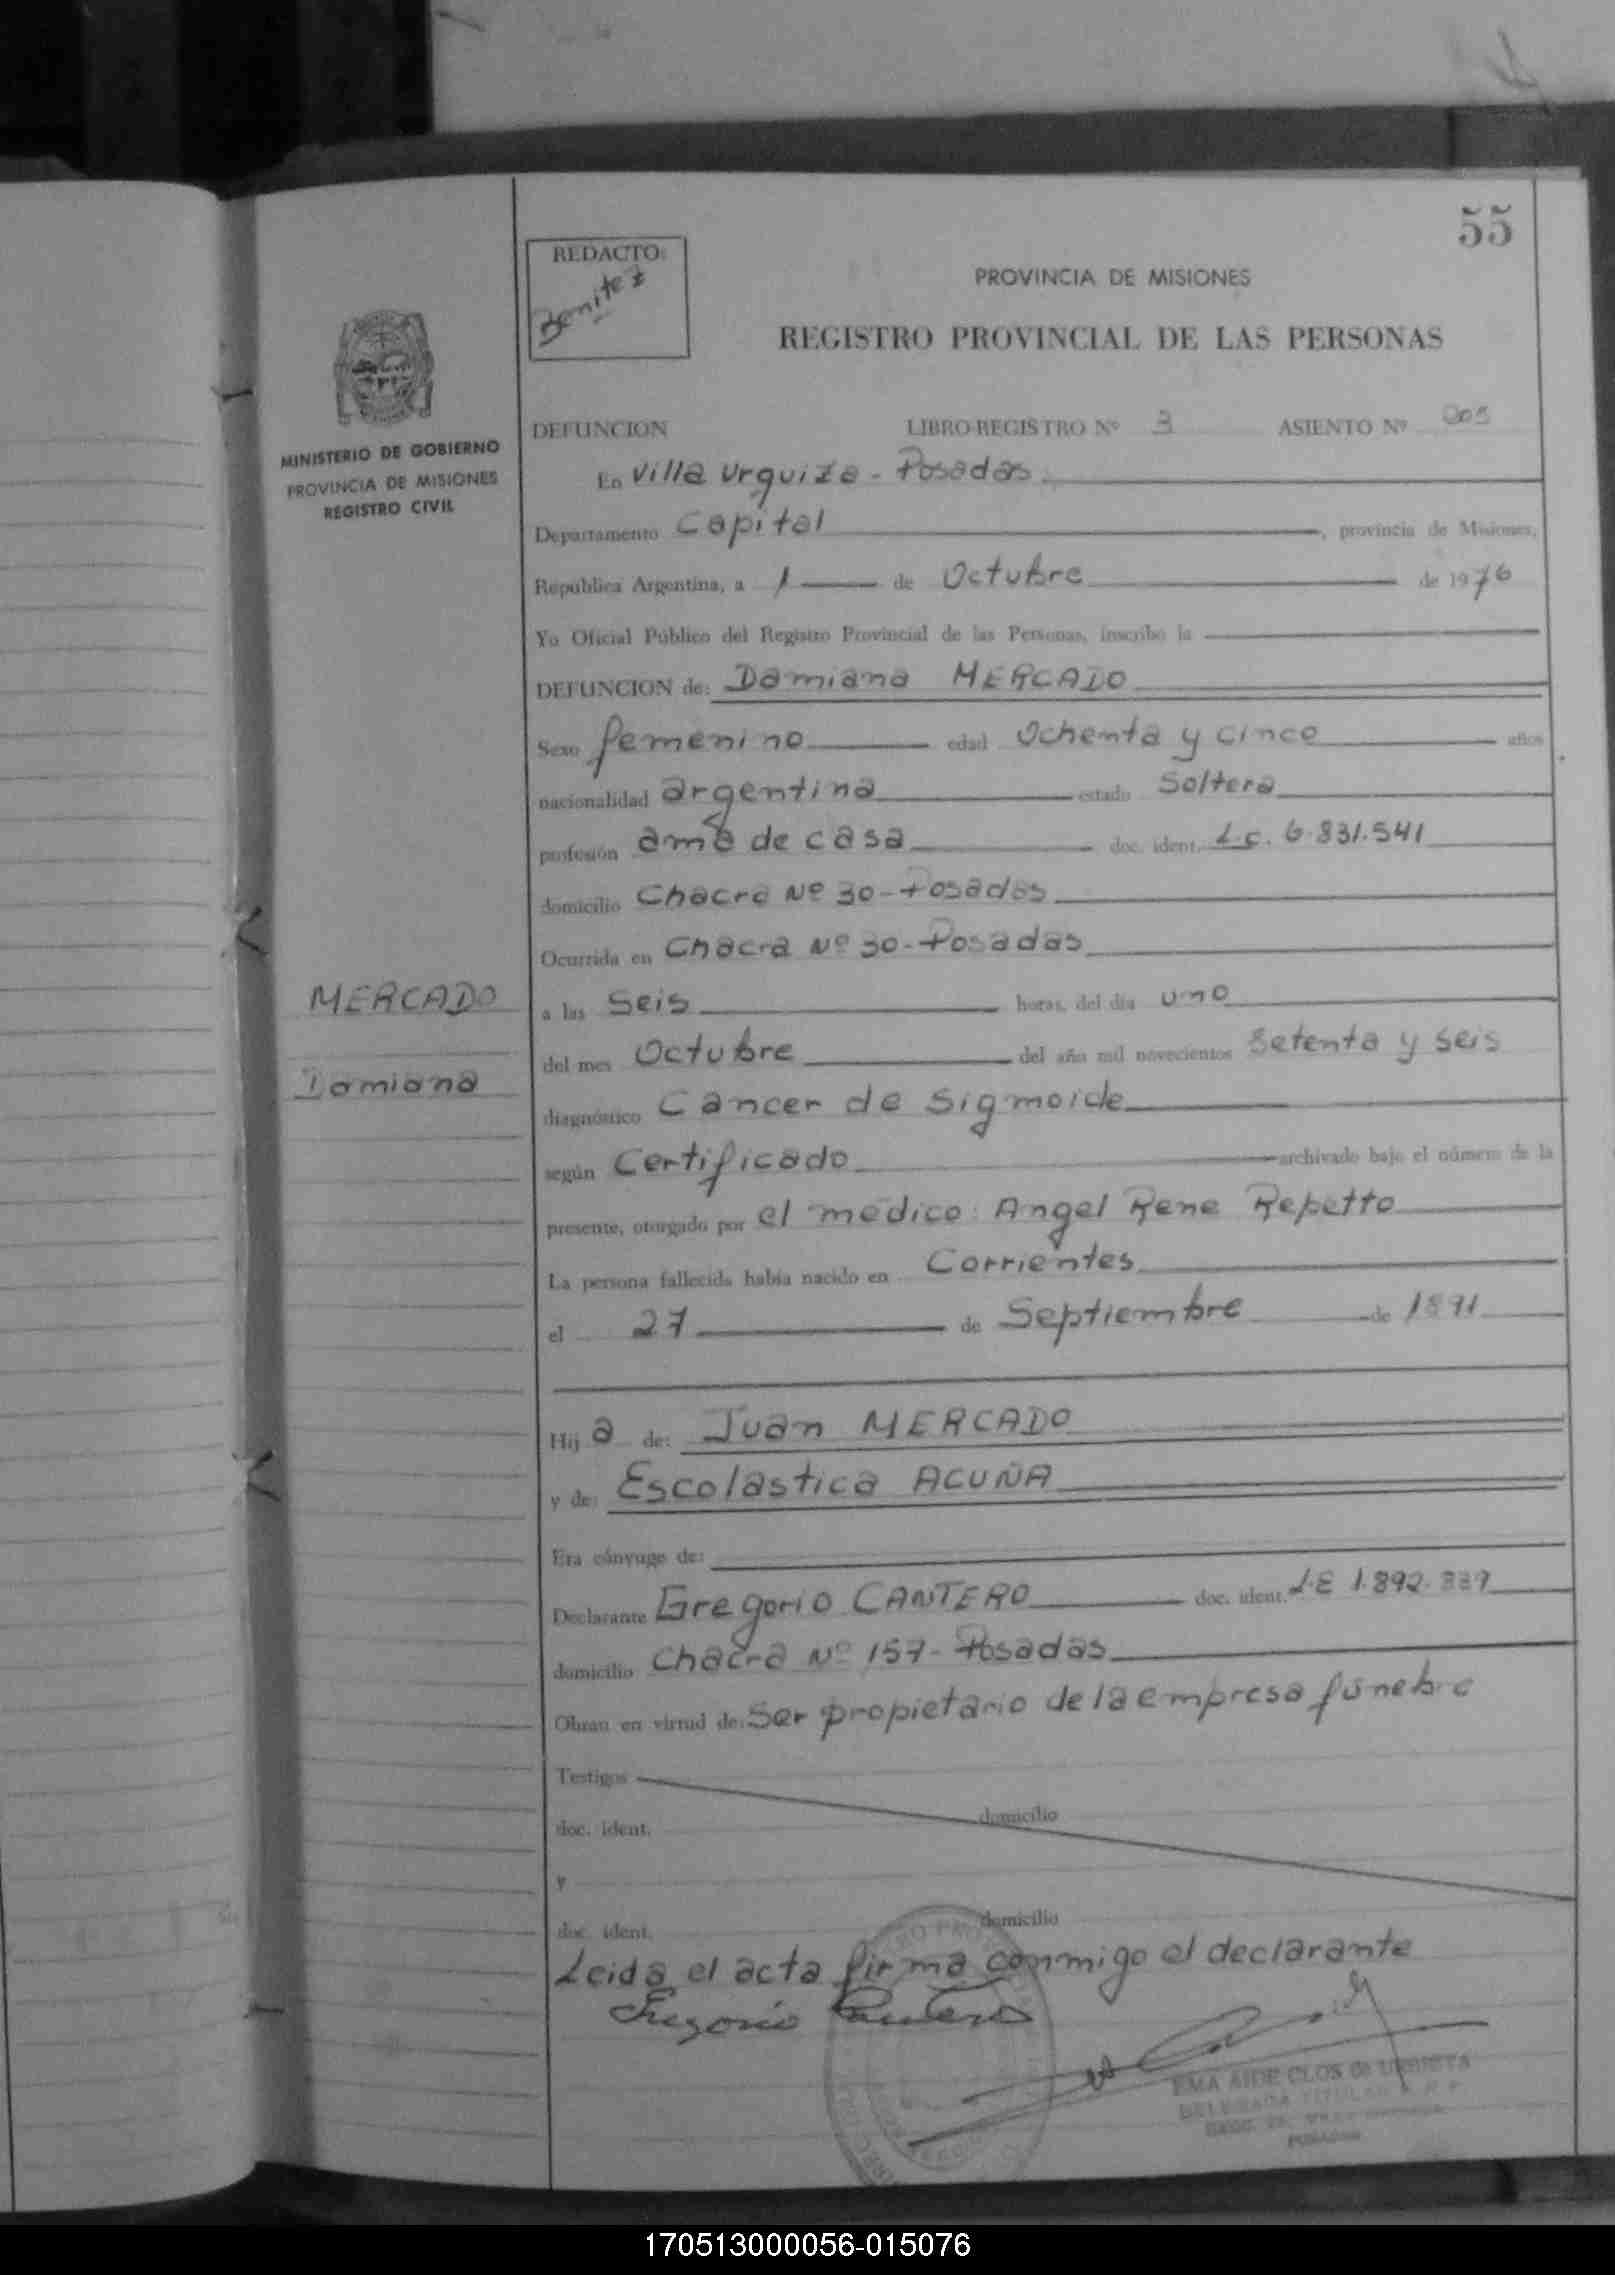 55
REDACTO:
Benitez
PROVINCIA DE MISIONES
REGISTRO PROVINCIAL DE LAS PERSONAS
MINISTERIO DE GOBIERNO
PROVINCIA DE MISIONES
REGISTRO CIVIL
DEFUNCION LIBRO-REGISTRO Nº 3 ASIENTO Nº 005
En Villa Urquiza - Posadas
Departamento Capital, provincia de Misiones,
República Argentina, a 1 de Octubre de 1976
Yo Oficial Público del Registro Provincial de las Personas, inscribo la
DEFUNCION de: Damiana MERCADO
Sexo femenino edad Ochenta y cinco años
nacionalidad argentina estado Soltera
profesión ama de casa doc. ident. L.C. 6.831.541
domicilio Chacra Nº 30-Posadas
Ocurrida en Chacra Nº 30-Posadas
MERCADO
Damiana
a las Seis horas, del día uno
del mes Octubre del año mil novecientos Setenta y seis
diagnóstico Cancer de Sigmoide
según Certificado archivado bajo el número de la
presente, otorgado por el medico: Angel Rene Repetto
La persona fallecida había nacido en Corrientes
el 27 de Septiembre de 1891
Hij a de: Juan MERCADO
y de: Escolastica ACUÑA
Era cónyuge de:
Declarante Gregorio CANTERO doc. ident. L.E 1.892.
domicilio Chacra Nº 157- Posadas
Obran en virtud de: Ser propietario de la empresa fúnebre
Testigos
doc. ident. domicilio
y
doc. ident. domicilio
Leida el acta firma conmigo el declarante
Gregorio Cantero
EMA AIDE CLOS de URRUTIA
DELEGADA TITULAR R. P. P.
POSADAS
170513000056-015076